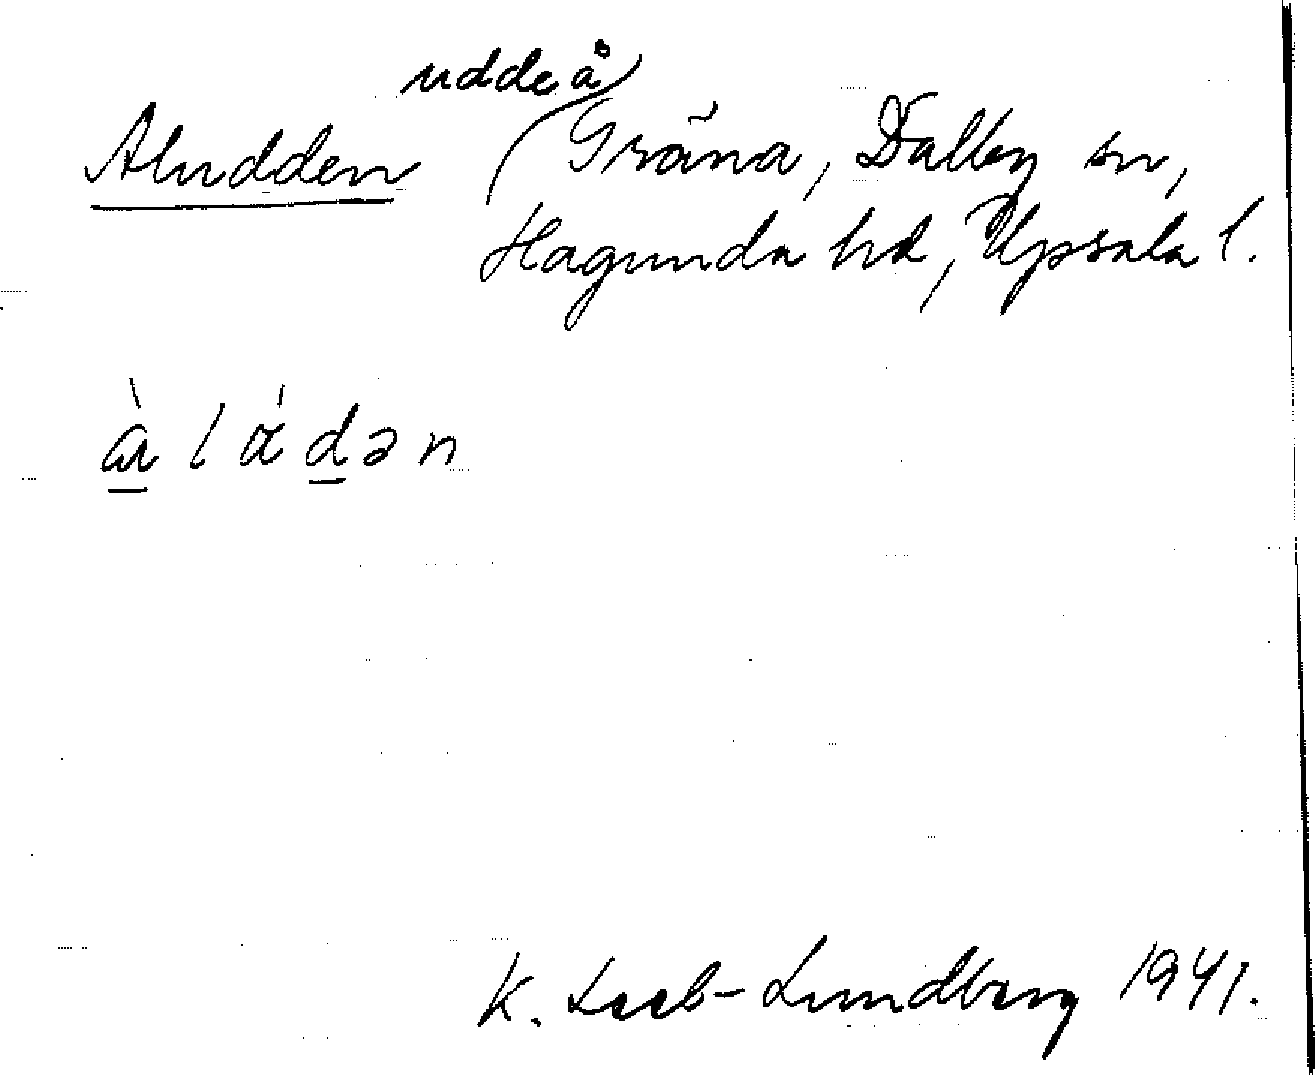 udde å
Aludden Gräna, Dalby sn,
Hagunda hd, Upsala l.
K. Leeb-Lundberg 1941.